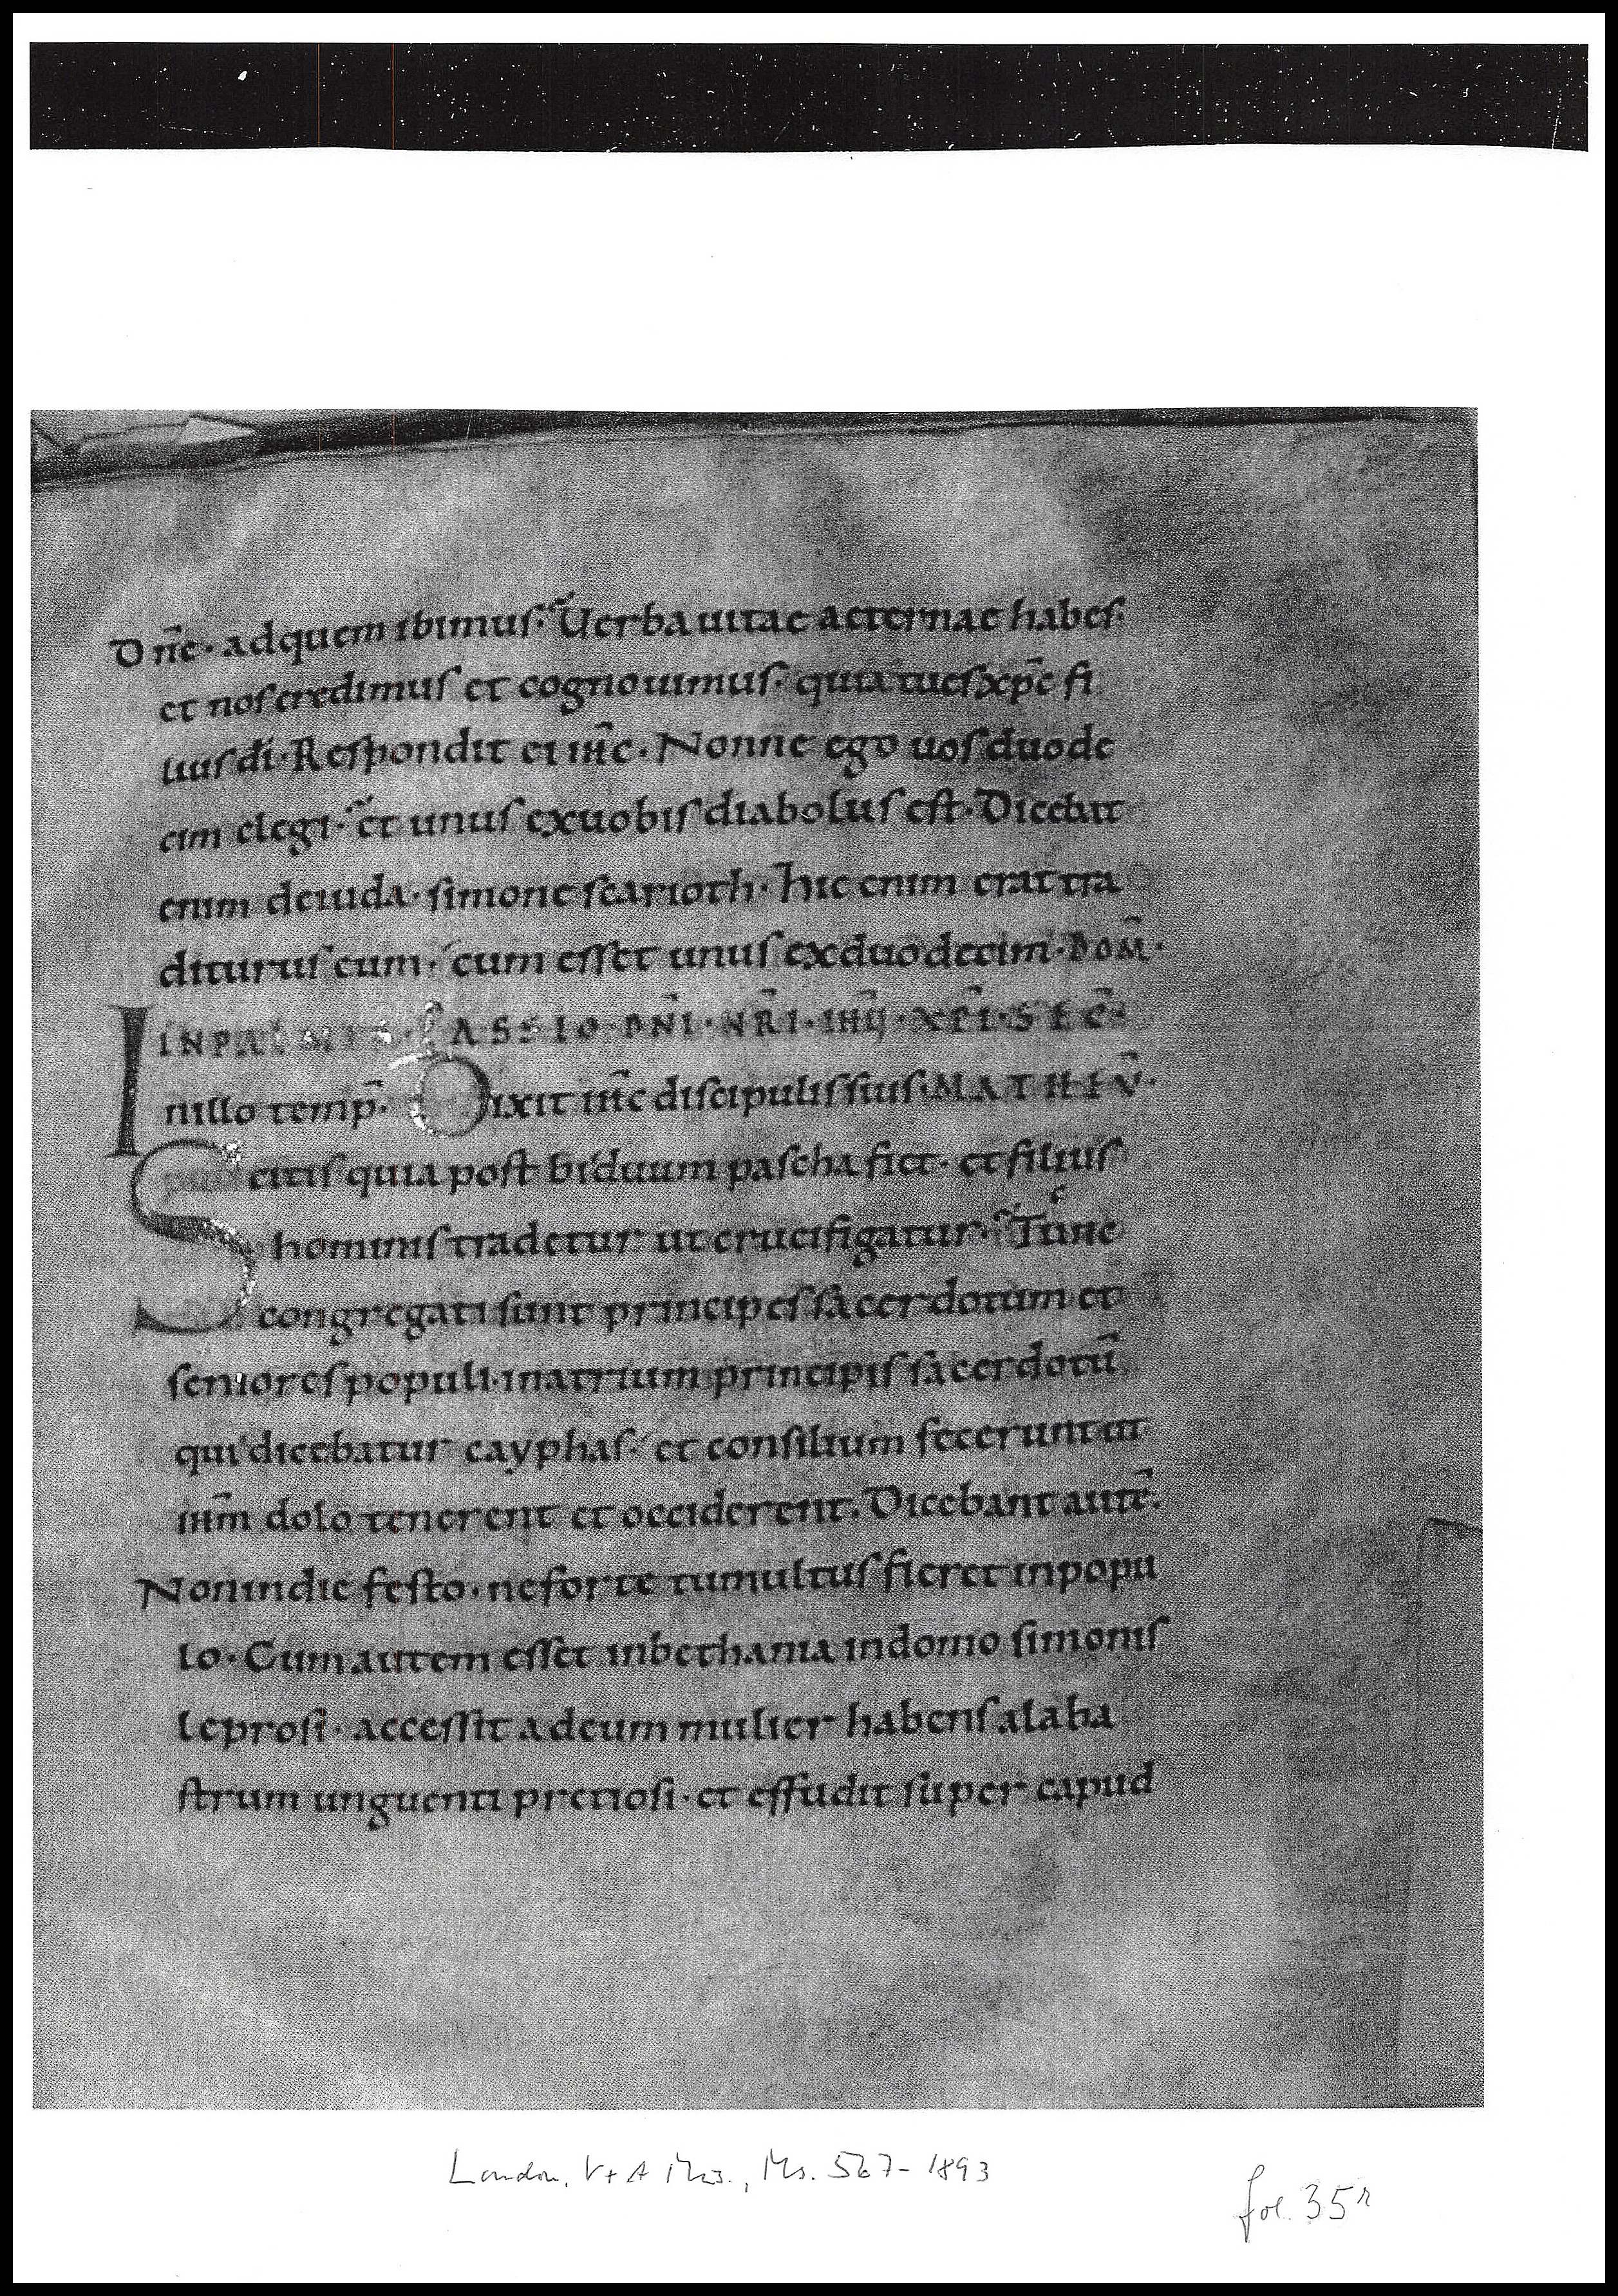 Dn̄e · adquem ibimus · Uerba uitae aeternae habes ·
et nos credimus et cognouimus · quia tu es xp̄c fi
lius dī · Respondit ei ih̄c · Nonne ego uos duode
cim elegi · et unus ex uobis diabolus est · Dicebat
enim de iuda · simone scarioth · hic enim erat tra
diturus eum · cum esset unus ex duodecim · DOM̄ ·
IN PALMIS · PASSIO · DN̄I · NR̄I · IH̄V · XP̄I · SEC̄
In illo temp̄ · Dixit ih̄c discipulis suis · MATHEV̄ ·
Scitis quia post biduum pascha fiet · et filius
hominis tradetur ut crucifigatur · Tunc
congregati sunt principes sacerdotum et
seniores populi · in atrium principis sacerdotū
qui dicebatur cayphas · et consilium fecerunt ut
ih̄m dolo tenerent et occiderent · Dicebant autē ·
Non in die festo · ne forte tumultus fieret in popu
lo · Cum autem esset in bethania in domo simonis
leprosi · accessit ad eum mulier habens alaba
strum unguenti pretiosi · et effudit super capud
London, V+A Mus., Ms. 567-1893
fol. 35r